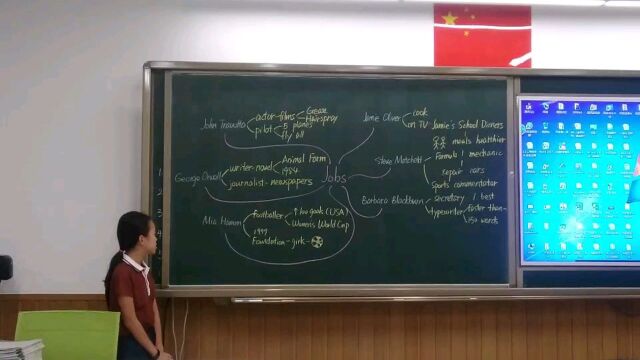 John Travolta
actor-films
Grease
Hairspray
pilot
5 planes
fly all
George Orwell
writer-novel
Animal Farm
1984
journalist-newspapers
Mia Hamm
footballer
↑ 100 goals (USA)
Women's World Cup
1999
Foundation-girls-
Jobs
Jamie Oliver
cook
on TV Jamie's School Dinners
meals healthier
Steve Matchett
Formula 1 mechanic
repair cars
Sports commentator
Barbara Blackburn
secretary 1 best
typewriter
faster than-
150 words